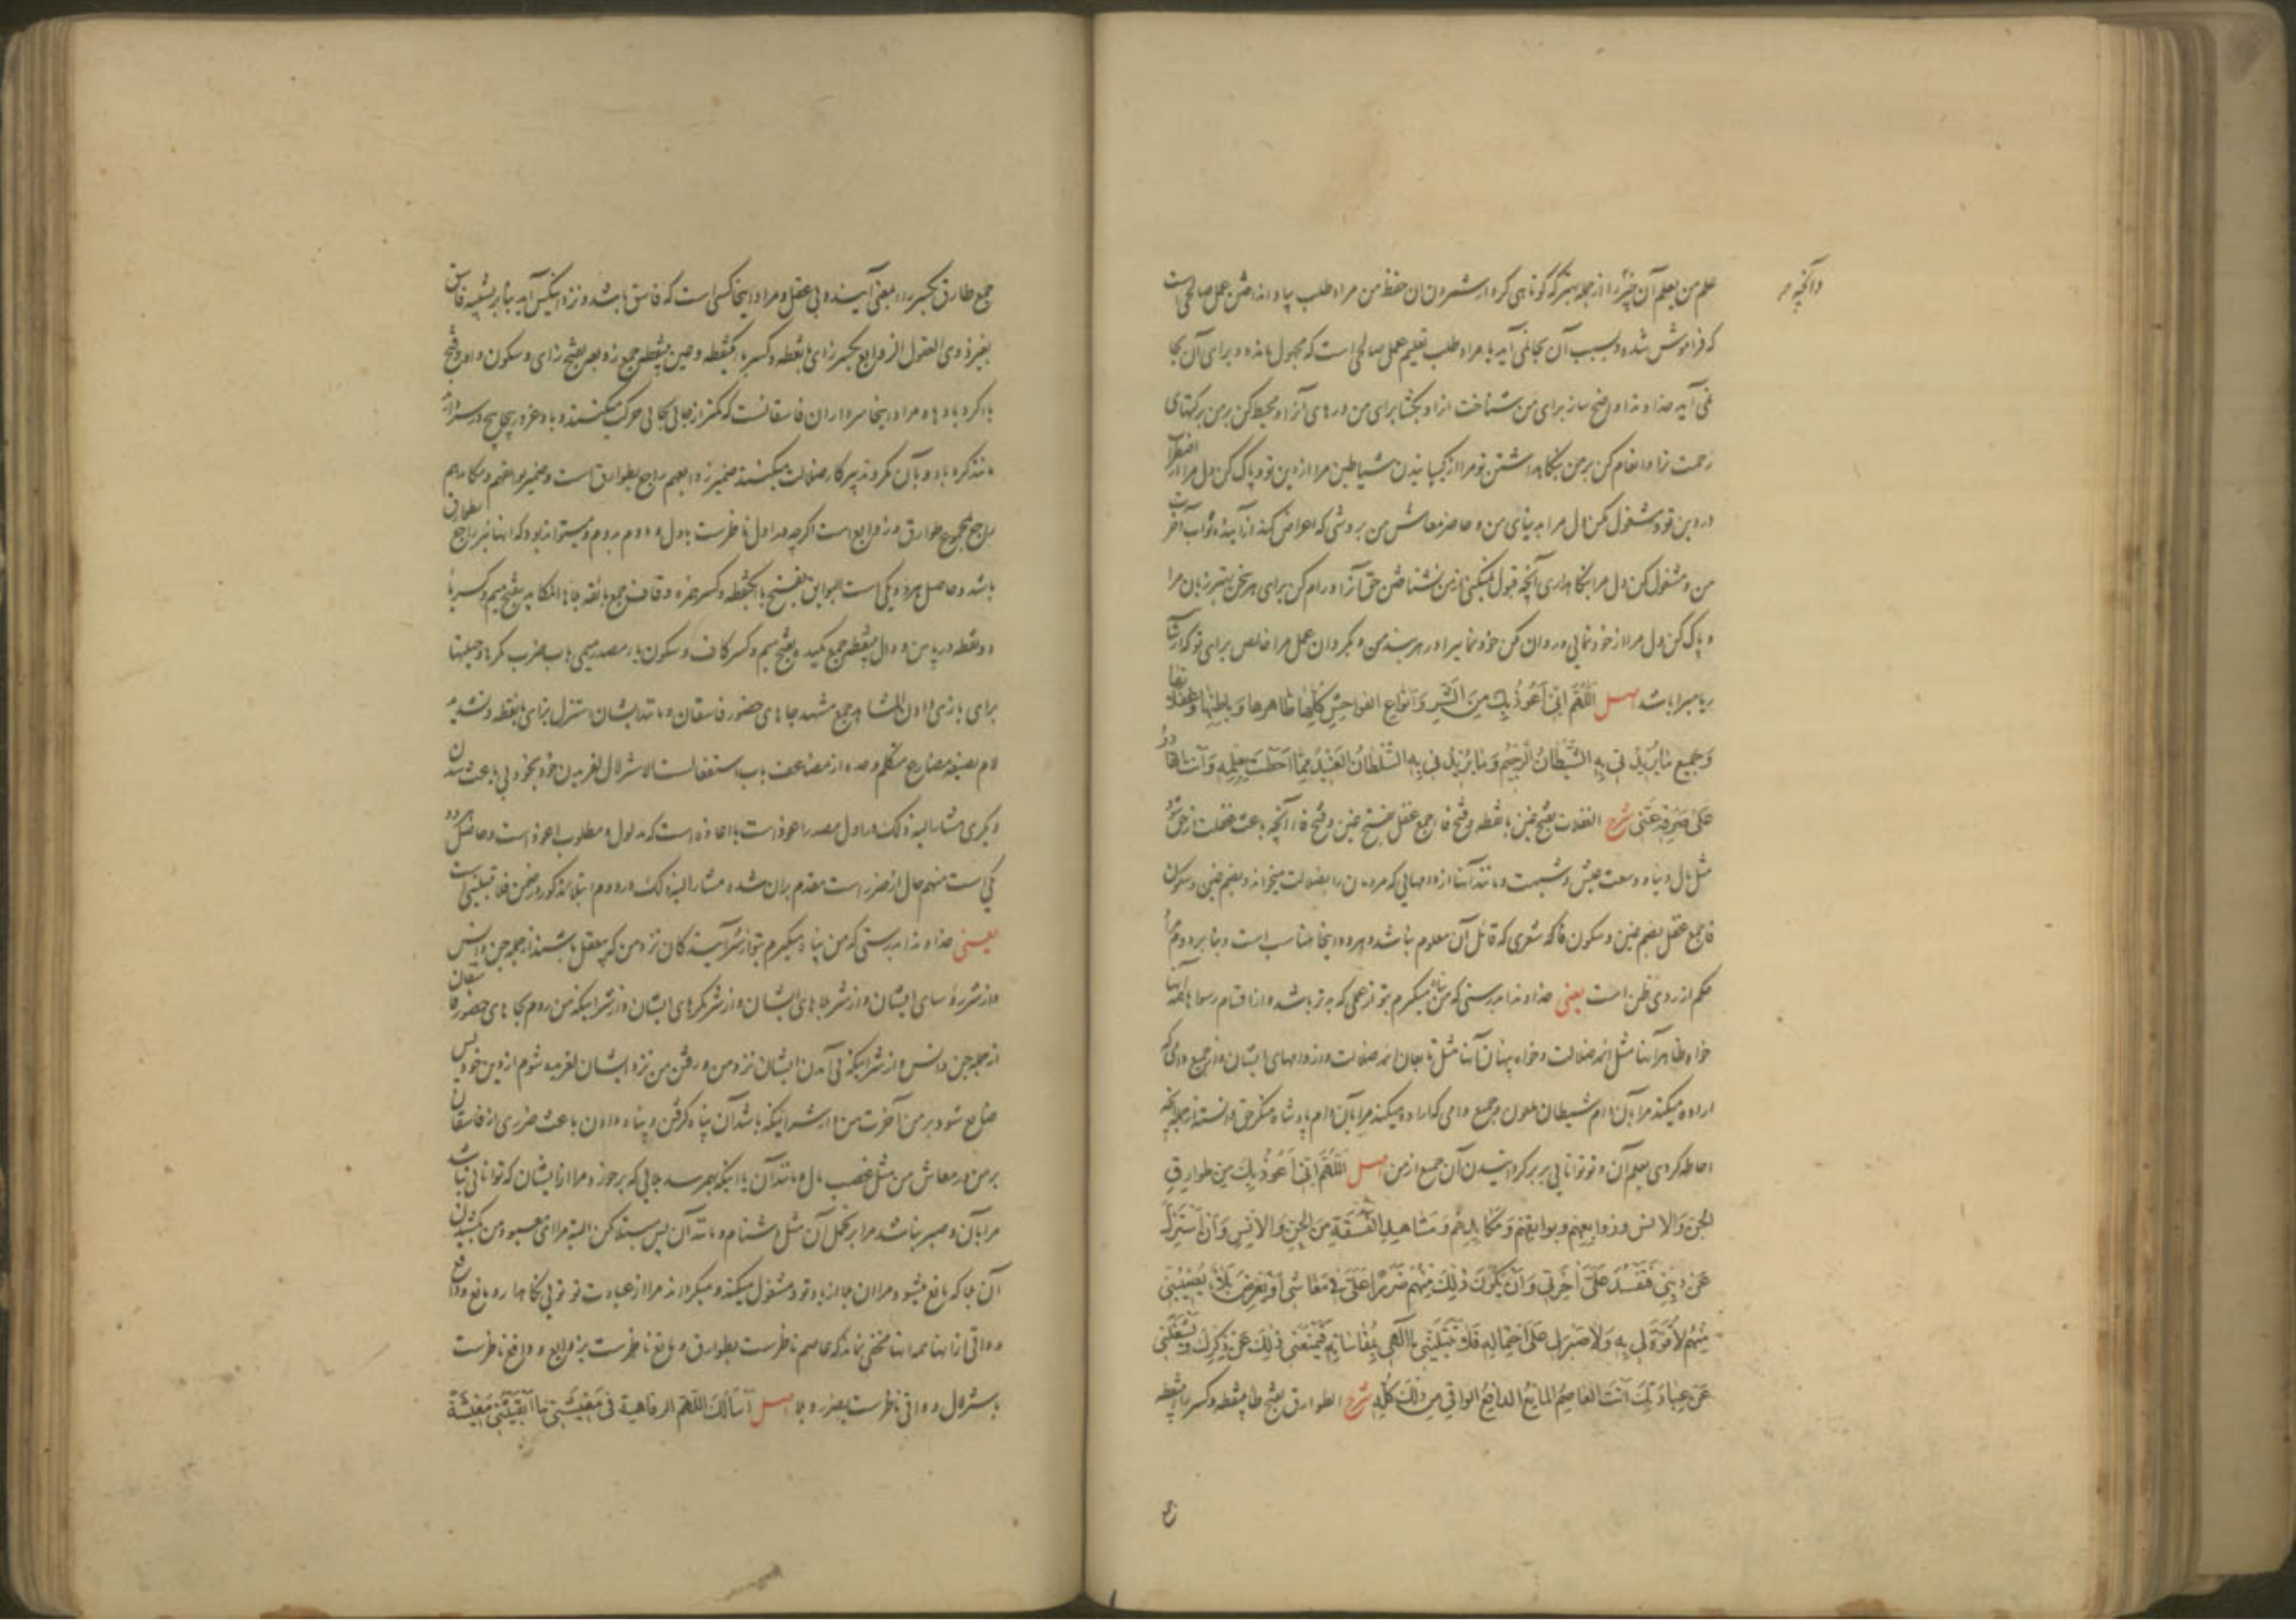 وآنچه
علم من بعلم آن چیز را از جمله بهتر که کوتاهی کرد از شمردن آن حفظ من مراد طلب بیاد انداختن عمل صالحی است
که فراموش شده و بسبب آن بجا نمی آید یا مراد طلب تعلیم عمل صالحی است که مجهول مانده و برای آن بجا
نمی آید خداوندا واضح ساز برای من شناخت آنرا و بکشا برای من درهای آنرا و محیط کن بر من برکتهای
رحمت ترا و انعام کن بر من بنگاهداشتن تو مرا از شیاطین مرا از دین تو و پاک کن دل مرا از اضطراب
در دین تو و مشغول کن دل مرا بدنیای من و حاضر معاش من بروشی که اعراض کند از آینده ثواب آخرت
من و مشغول کن دل مرا بنگاهداری آنچه قبول نمیکنی از من نشناختن حق آنرا و رام کن برای هر سخن بهتر زبان مرا
و پاک کن دل مرا از خودنمایی و روان کن خودنمایی را در هر بند من و بگردان عمل مرا خالص برای تو که از شائبه
ریا مبرا باشد اصل اللَّهُمَّ إِنِّي أَعُوذُ بِكَ مِنَ الشَّرِّ وَأَنْوَاعِ الْفَوَاحِشِ كُلِّهَا ظَاهِرِهَا وَبَاطِنِهَا وَغَفَلَاتِهَا
وَجَمِيعِ مَا يُرِيدُنِي بِهِ الشَّيْطَانُ الرَّجِيمُ وَمَا يُرِيدُنِي بِهِ السُّلْطَانُ الْعَنِيدُ مِمَّا أَحَطْتَ بِعِلْمِهِ وَأَنْتَ الْقَادِرُ
عَلَى صَرْفِهِ عَنِّي شرح الغفلات بفتح غین با نقطه و فتح فا جمع غفل بفتح غین و فتح فا آنچه باعث غفلت از حق شود
مثل مال دنیا و وسعت عیش و مانند آنها از دامهایی که مردمان را بضلالت میخواند و بضم غین و سکون
فا جمع غفل بضم غین و سکون فا که شعری که قائل آن معلوم نباشد و هر دو اینجا مناسب است و بنابر دوم مراد
حکم از روی ظن است یعنی خداوندا بدرستی که من پناه میگیرم بتو از عملی که بدتر باشد و از اقسام رسواها همه آنها
خواه ظاهر آنها مثل ائمه ضلالت و خواه پنهان آنها مثل تابعان ائمه ضلالت و از دامهای ایشان و از جمیع دامی که
اراده میکند مرا بآن دام شیطان ملعون و جمیع دامی که اراده میکند مرا بآن دام پادشاه منکر حق دانسته از جمله آنچه
احاطه کردی بعلم آن و تو توانایی بر برگردانیدن آن جمیع از من اصل اللَّهُمَّ إِنِّي أَعُوذُ بِكَ مِنْ طَوَارِقِ
الْجِنِّ وَالْإِنْسِ وَزَوَابِعِهِمْ وَبَوَائِقِهِمْ وَمَكَايِدِهِمْ وَمَشَاهِدِ الْفَسَقَةِ مِنَ الْجِنِّ وَالْإِنْسِ وَأَنْ أُسْتَزَلَّ
عَنْ دِينِي فَتَفْسُدَ عَلَيَّ آخِرَتِي وَأَنْ يَكُونَ ذَلِكَ مِنْهُمْ ضَرَرًا عَلَيَّ فِي مَعَاشِي أَوْ يَعْرِضَ بَلَاءٌ يُصِيبُنِي
مِنْهُمْ لَا قُوَّةَ لِي بِهِ وَلَا صَبْرَ لِي عَلَى احْتِمَالِهِ فَلَا تَبْتَلِيَنِّي يَا إِلَهِي بِمُقَاسَاتِهِ فَيَمْنَعَنِي ذَلِكَ عَنْ ذِكْرِكَ وَيَشْغَلَنِي
عَنْ عِبَادَتِكَ أَنْتَ الْعَاصِمُ الْمَانِعُ الدَّافِعُ الْوَاقِي مِنْ ذَلِكَ كُلِّهِ شرح الطوارق بفتح طا بینقطه و کسر را بینقطه
جمع طارق بکسر را بمعنی آینده بی عقل و مراد اینجا کسی است که فاسق باشد و نزد اینکس آید بنابر تشبیه فاسق
بغیر ذوی العقول الزوابع بکسر زای با نقطه و کسر با یکنقطه و عین بینقطه جمع زوبعه بفتح زای و سکون واو و فتح
با گردبادها و مراد اینجا سرداران فاسقانست که مکرر از جائی بجائی حرکت میکنند و باد غرور پیچاپیچ در سر
مانند گردباد و بآن مکر و تدبیر کار ضلالت میکنند ضمیر زوابعهم راجع بطوارق است و ضمیر بوائقهم و مکایدهم
راجع بمجموع طوارق و زوابع است اگرچه اول ناظرست باول و دوم بدوم و میتواند بود که اینها نیز راجع بطوارق
باشد و حاصل هر دو یکی است البوائق بفتح با یکنقطه و کسر همزه و قاف جمع بائقه بلاها المکاید بفتح میم و کسر یا
دو نقطه در پایین و دال بینقطه جمع مکیده بفتح میم و کسر کاف و سکون یا مصدر میمی باب ضرب مکرها و حیلتها
برای بازی دادن المشاهد جمع مشهد جاهای حضور فاسقان و مانند ایشان استزل بزای با نقطه و تشدید
لام بصیغه مضارع متکلم وحده از مضاعف باب استفعالست الاستزلال لغزیدن خود بخود بی باعث شدن
دیگری مشار الیه ذلک در اول مصدر اعوذ است یا اعاذه است که مدلول و مطلوب اعوذ است و حاصل هر دو
یکی است منهم حال از ضرر است مقدم بر آن شده مشار الیه ذلک در دوم ابتلا مذکور در ضمن فلا تبتلینی است
یعنی خداوندا بدرستی که من پناه میگیرم بتو از شر آیندگان نزد من که بیعقل باشند از جمله جن و انس
و از شر رؤسای ایشان و از شر بلاهای ایشان و از شر مکرهای ایشان و از شر اینکه من روم بجاهای حضور فاسقان
از جمله جن و انس و از شر اینکه بی آمدن ایشان نزد من و رفتن من نزد ایشان لغزیده شوم از دین خود پس
ضایع شود بر من آخرت من و از شر اینکه باشد آن پناه گرفتن و پناه دادن باعث ضرری از فاسقان
بر من در معاش من مثل غصب مال و مانند آن یا اینکه بهم رسد بلایی که برخورد مرا از ایشان که توانایی نباشد
مرا بآن و صبر نباشد مرا بر تحمل آن مثل دشنام و مانند آن پس مبتلا مکن البته مرا ای معبود من بکشیدن
آن بلا که مانع میشود مرا آن بلا از یاد تو و مشغول میکند و میگرداند مرا از عبادت تو تویی نگاهدار و مانع و دافع
و واقی از اینها همه اینها مخفی نماند که عاصم ناظرست بطوارق و مانع ناظرست بزوابع و دافع ناظرست
باستزلال و واقی ناظرست بضرر و بلا اصل أَسْأَلُكَ اللَّهُمَّ الرَّفَاهِيَةَ فِي مَعِيشَتِي مَا أَبْقَيْتَنِي مَعِيشَةً